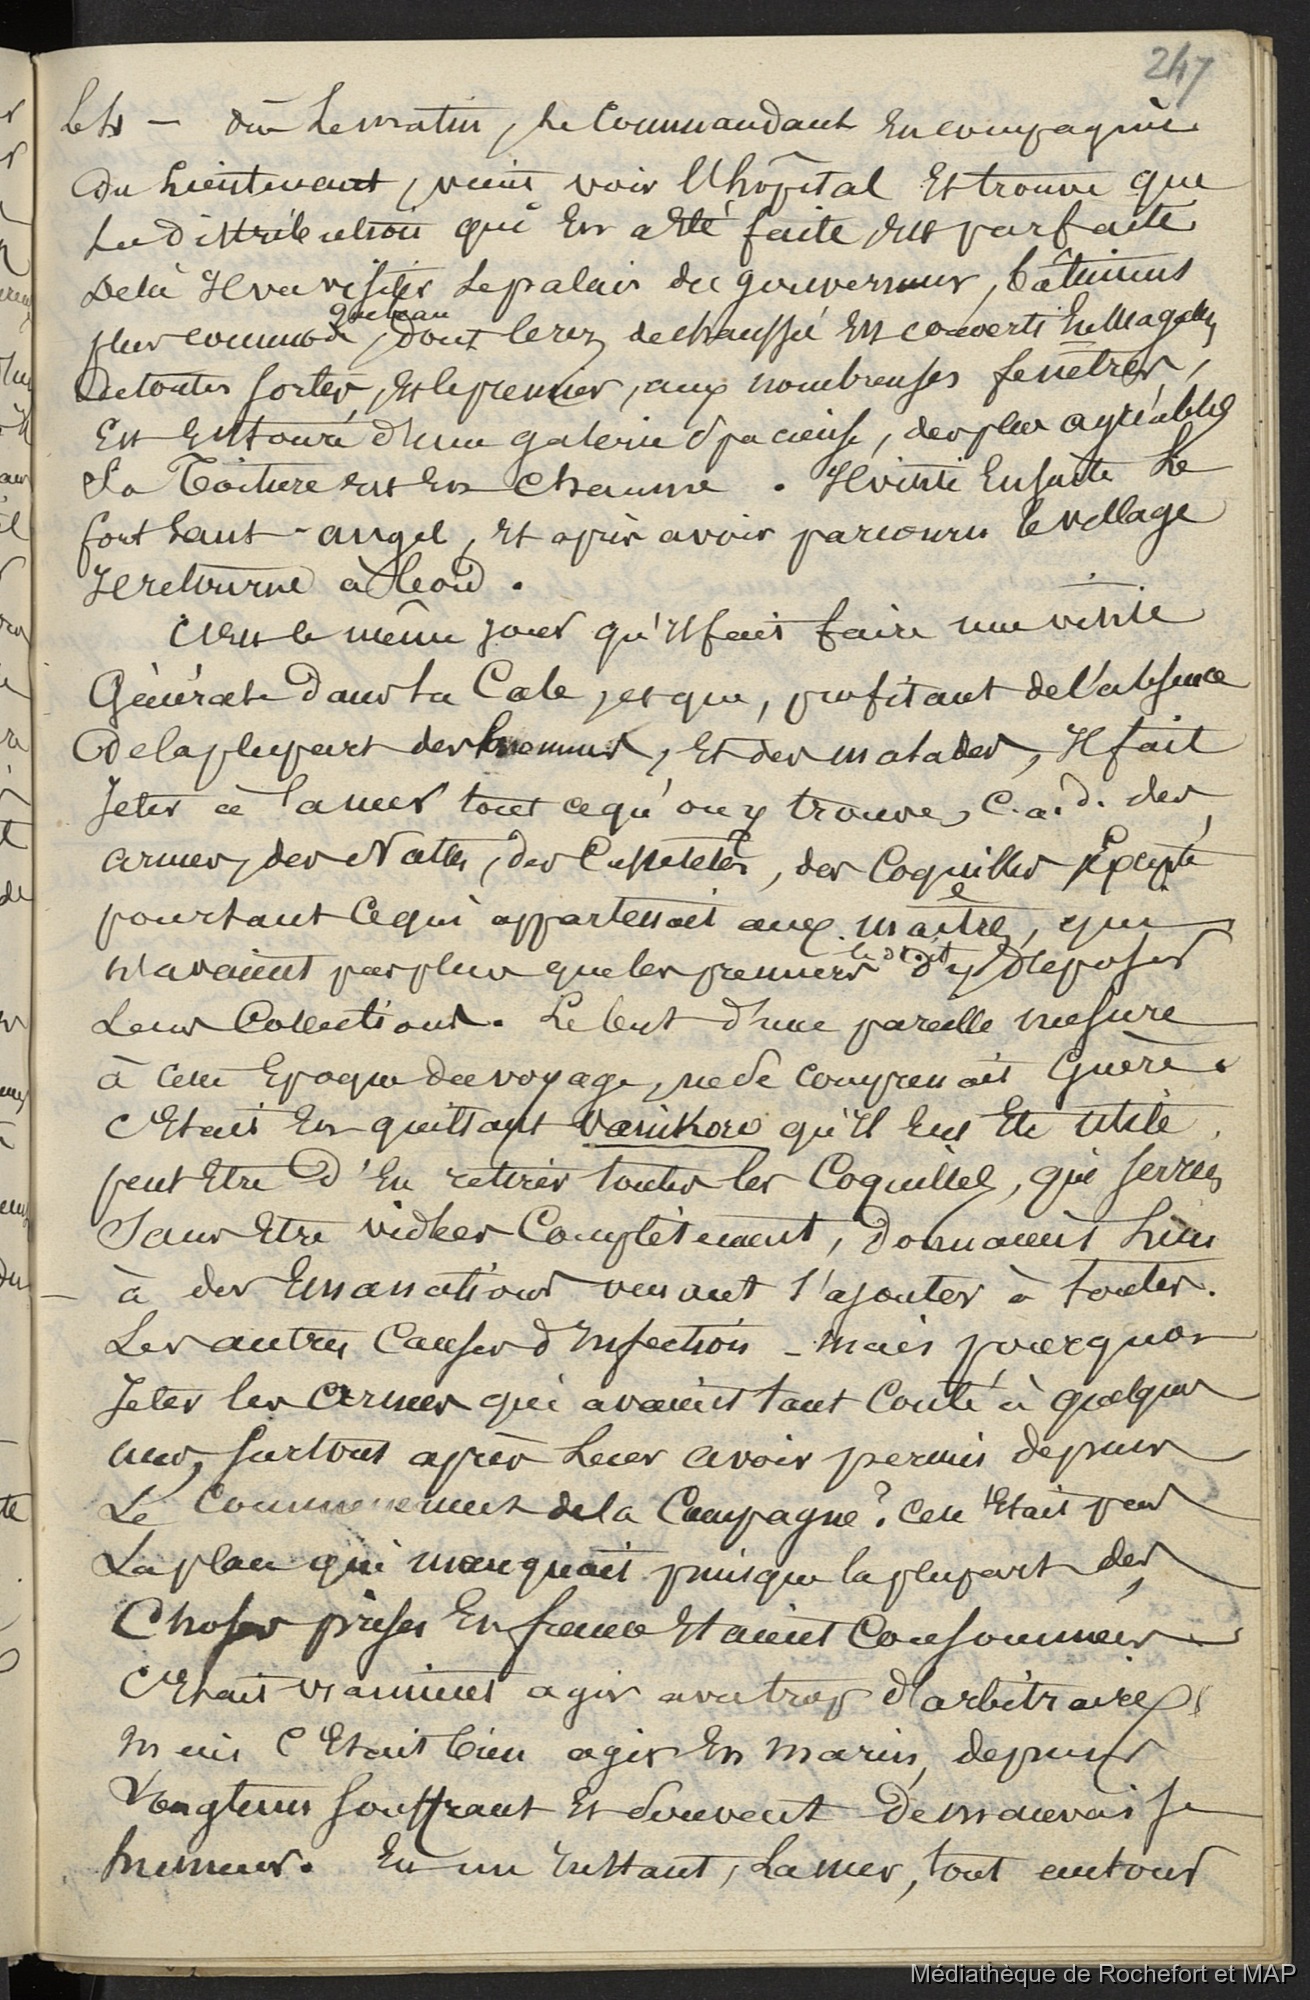 247
Le 4 — Dès Le matin, Le Commandant En compagnie
Du Lieutenant, vient voir l'hôpital Et trouve que
La distribution qui En a Eté faite Est parfaite
De là Il va visiter Le palais du gouverneur, bâtiment
plus commode que beau, dont le rez de chaussée Est converti En Magasins
De toutes Sortes, Et le premier, aux nombreuses fenêtres,
Est Entouré d'une galerie Spacieuse, des plus agréables
La Toiture Est En Chaume. Il visite Ensuite Le
fort Sant-angel, Et après avoir parcouru le village
Il retourne à bord.
C'Est le même Jour qu'Il fait faire une visite
Générale Dans La Cale, et que, profitant de l'absence
De la plupart des hommes, Et des malades, Il fait
Jeter à la mer tout ce qu'on y trouve, c.a.d. des
armes, des Nattes, des Casse têtes, des Coquilles Excepté
pourtant Ce qui appartenait aux maîtres, qui
n'avaient pas plus que les premiers le droit d'y Déposer
Leurs Collections. Le but d'une pareille mesure
à cette Epoque du voyage, ne Se comprenait Guère.
C'Etait En quittant Vanikoro qu'Il Eut Eté utile
peut Etre D'En retirer toutes les Coquilles, qui Serrées
Sans Etre vidées Complètement, Donnaient Lieu
à des Emanations venant s'ajouter à toutes.
Les autres Causes d'Infection - mais pourquoi
Jeter les armes qui avaient tant Couté à quelques
uns, Surtout après Leur avoir permis depuis
Le Commencement de la Campagne? Ce n'Etait pas
La place qui manquait puisque la plupart des
Choses prises En france Etaient Consommées
C'Etait vraiment agir avec trop d'arbitraire,
mais C'Etait bien agir En marin, depuis
Longtems Souffrant Et Souvent De mauvaise
humeur. En un Instant, La mer, tout autour
Médiathèque de Rochefort et MAP